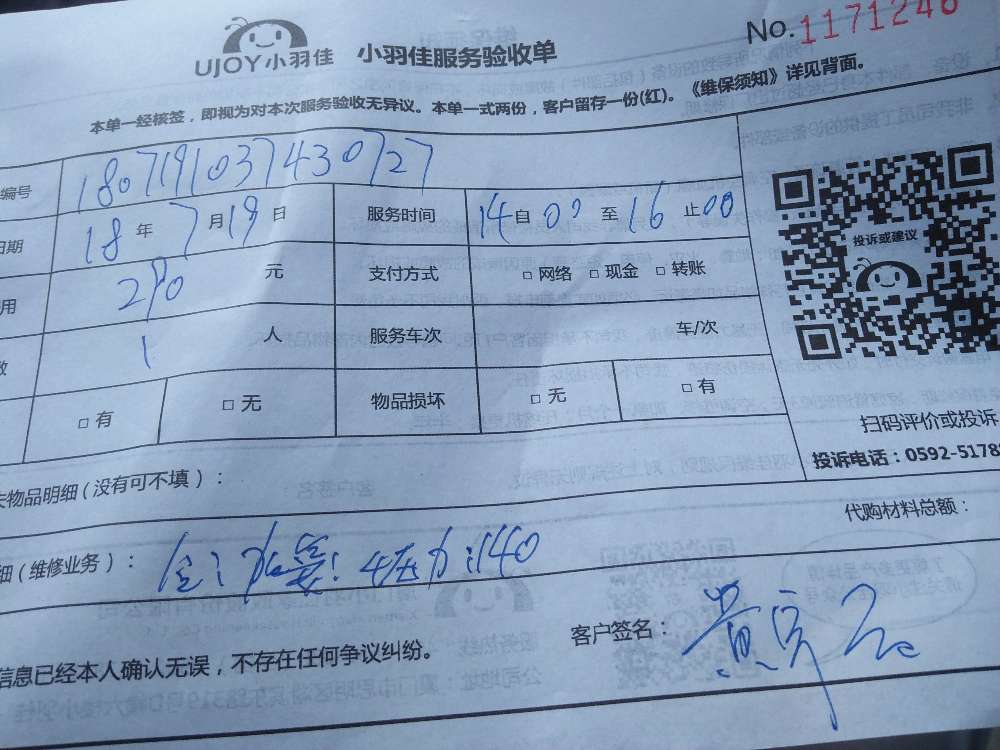 UJOY小羽佳 小羽佳服务验收单 No.1171246
本单一经核签，即视为对本次服务验收无异议。本单一式两份，客户留存一份(红)。《维保须知》详见背面。
编号 1807191037430727
日期 18年7月19日 服务时间 14自00至16止00
用 280元 支付方式 □网络 □现金 □转账
数 1人 服务车次 车/次
□有 □无 物品损坏 □无 □有
投诉或建议
扫码评价或投诉
投诉电话：0592-5178
物品明细(没有可不填)：
代购材料总额：
细(维修业务)：
140
信息已经本人确认无误，不存在任何争议纠纷。
客户签名：黄